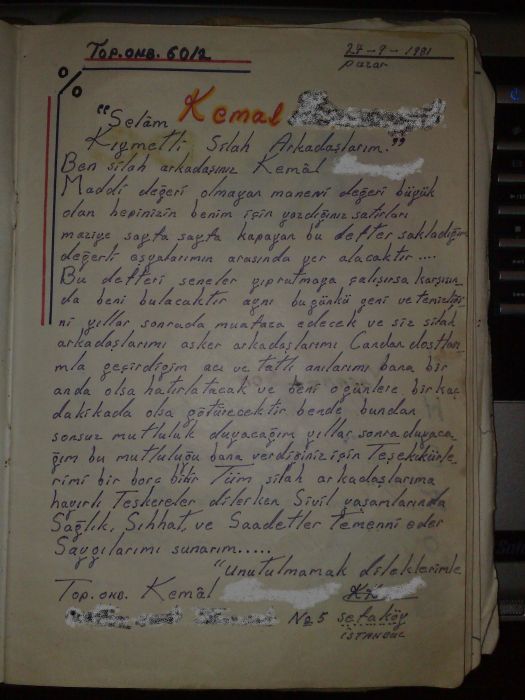 TOP. ONB. 60/2
27-9-1981
pazar
"Selâm Kemal
Kıymetli Silah Arkadaşlarım."
Ben silah arkadaşınız Kemâl
Maddi değeri olmayan manevi değeri büyük
olan hepinizin benim için yazdığınız satırları
maziye sayfa sayfa kapayan bu defter sakladığım
değerli eşyalarımın arasında yer alacaktır....
Bu defteri seneler yıpratmaya çalışırsa karşısın-
da beni bulacaktır aynı bugünkü yeni ve temizliği-
ni yıllar sonrada muafaza edecek ve siz silah
arkadaşlarımı asker arkadaşlarımı Candan dostları
mla geçirdiğim acı ve tatlı anılarımı bana bir
anda olsa hatırlatacak ve beni o günlere birkaç
dakikada olsa götürecektir bende bundan
sonsuz mutluluk duyacağım yıllar sonra duyaca-
ğım bu mutluluğu bana verdiğiniz için Teşekkürle-
rimi bir borç bilir Tüm silah arkadaşlarıma
hayırlı Teskereler dilerken Sivil yaşamlarında
Sağlık, Sıhhat, ve Saadetler temenni eder
Saygılarımı sunarım.....
"Unutulmamak dileklerimle
TOP. ONB. Kemâl
No 5 sefaköy
İSTANBUL